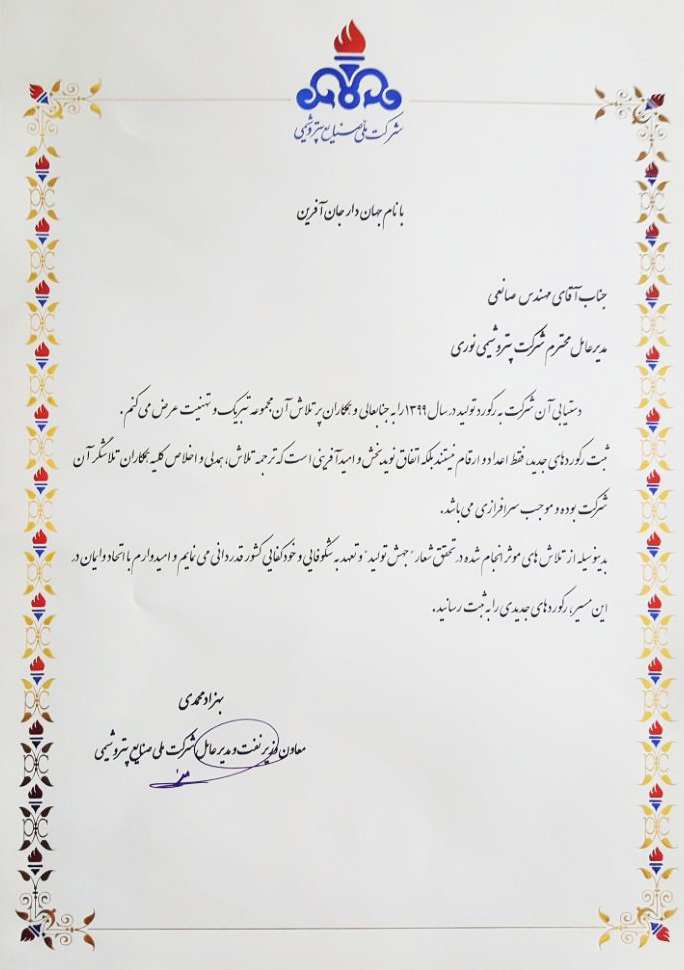 شرکت ملی صنایع پتروشیمی
با نام جهان دار جان آفرین
جناب آقای مهندس صانعی
مدیرعامل محترم شرکت پتروشیمی نوری
دستیابی آن شرکت به رکورد تولید در سال ۱۳۹۹ را به جنابعالی و همکاران پر تلاش آن مجموعه تبریک و تهنیت عرض می کنم.
ثبت رکوردهای جدید، فقط اعداد و ارقام نیستند بلکه اتفاق نوید بخش و امید آفرینی است که ترجمه تلاش، همدلی و اخلاص کلیه همکاران تلاشگر آن
شرکت بوده و موجب سرافرازی می باشد.
بدینوسیله از تلاش های موثر انجام شده در تحقق شعار "جهش تولید" و تعهد به شکوفایی و خودکفایی کشور قدردانی می نمایم و امیدوارم با اتحاد و ایمان در
این مسیر، رکوردهای جدیدی را به ثبت رسانید.
بهزاد محمدی
معاون وزیر نفت و مدیرعامل شرکت ملی صنایع پتروشیمی